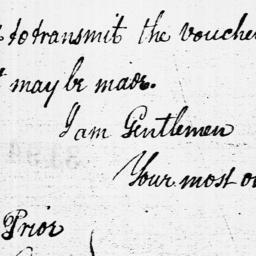 to transmit the vouche
may be made.
I am Gentlemen
Your most o
Prior